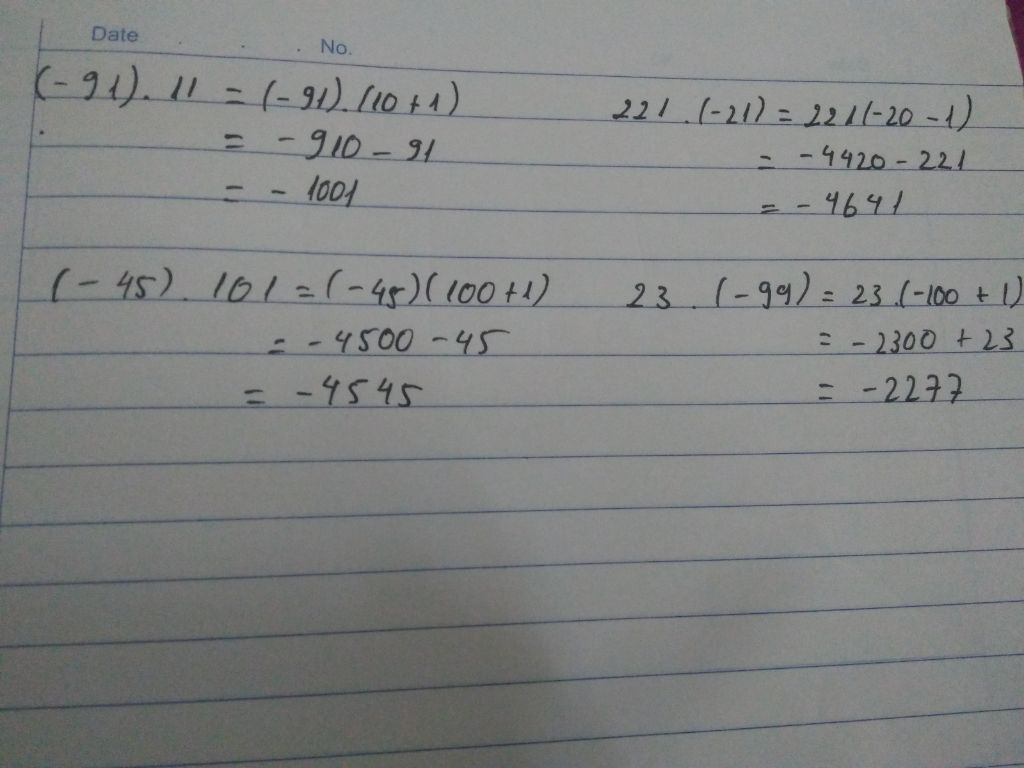 Date No.
(-91). 11 = (-91).(10+1)
= -910 - 91
= - 1001
221 . (-21) = 221(-20 -1)
= -4420 - 221
= - 4641
(-45). 101 = (-45)(100+1)
= -4500 - 45
= -4545
23 . (-99) = 23.(-100 + 1)
= -2300 + 23
= -2277